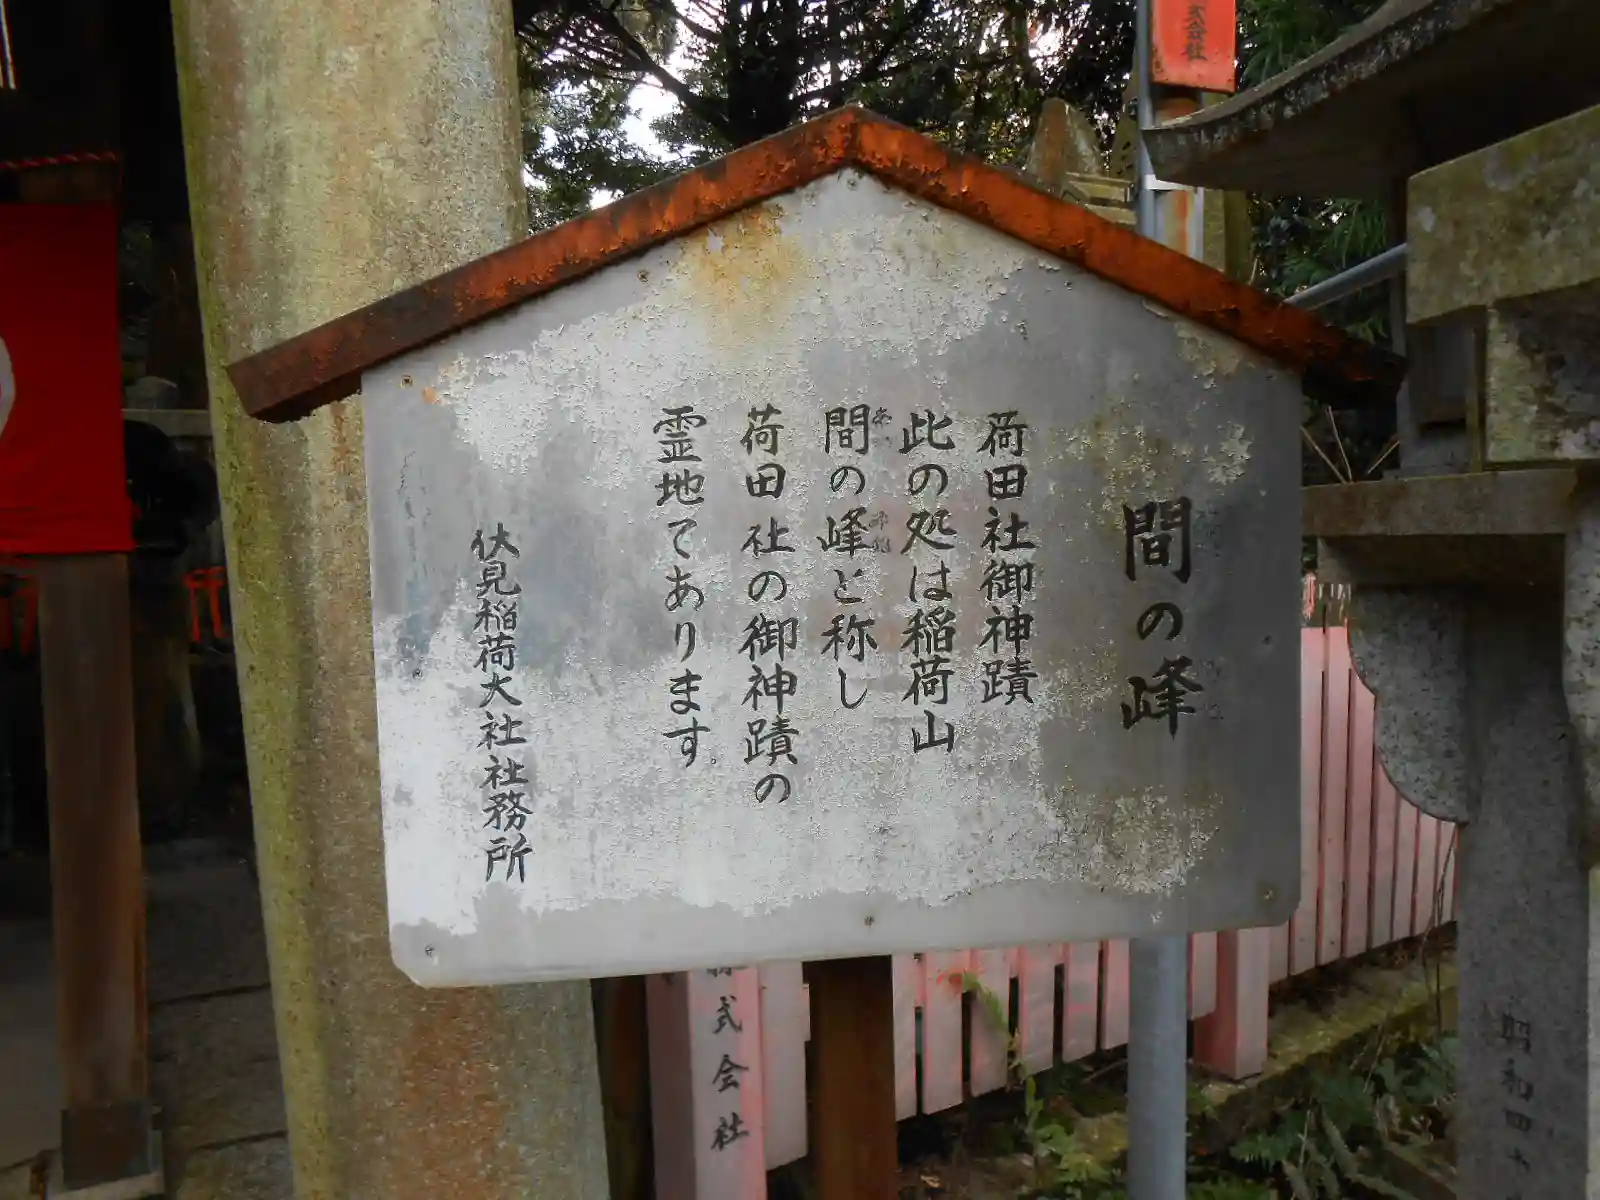 間の峰
荷田社御神蹟
此の処は稲荷山
間の峰と称し
荷田社の御神蹟の
霊地であります。
伏見稲荷大社社務所
式会社
昭和四十
式会社